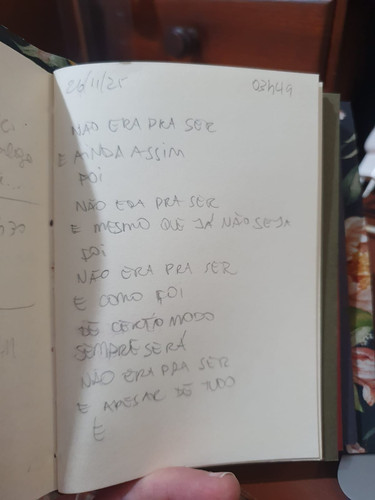 26/11/25 03h49
NÃO ERA PRA SER
E AINDA ASSIM
FOI
NÃO ERA PRA SER
E MESMO QUE JÁ NÃO SEJA
FOI
NÃO ERA PRA SER
E COMO FOI
DE CERTO MODO
SEMPRE SERÁ
NÃO ERA PRA SER
E APESAR DE TUDO
É